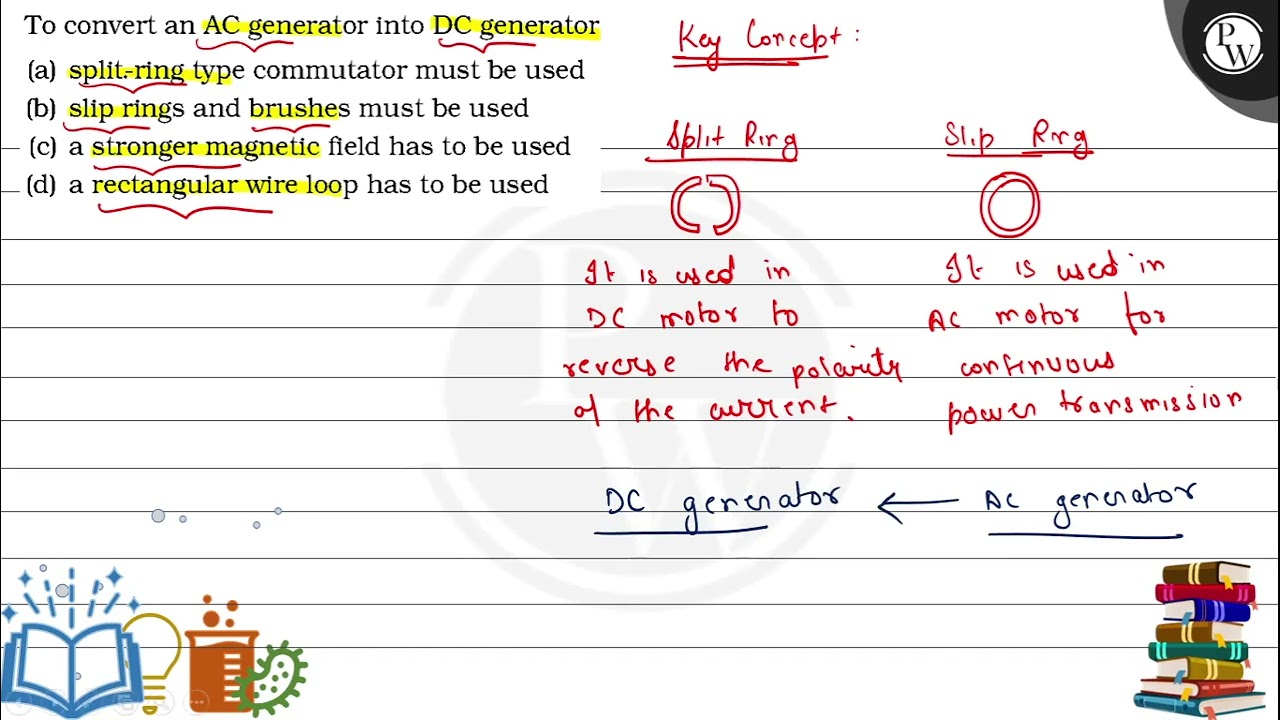 To convert an AC generator into DC generator
(a) split-ring type commutator must be used
(b) slip rings and brushes must be used
(c) a stronger magnetic field has to be used
(d) a rectangular wire loop has to be used
Key Concept :
Split Ring
It is used in
DC motor to
reverse the polarity
of the current.
Slip Ring
It is used in
AC motor for
continuous
power transmission
DC generator ← AC generator
PW
PW